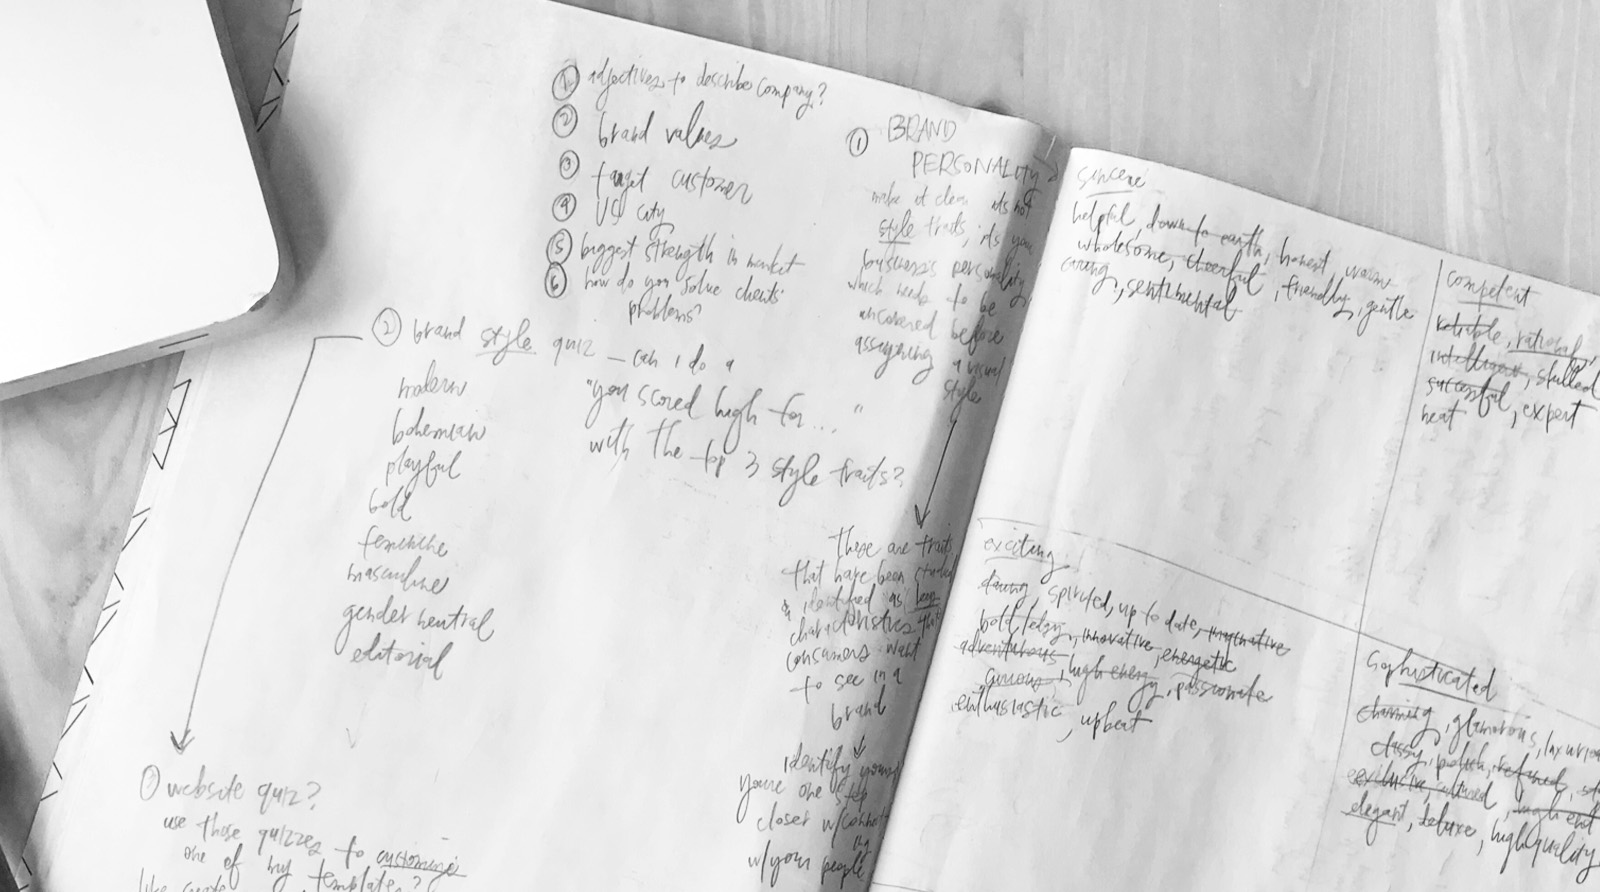 ① adjectives to describe company?
② brand values
③ target customer
④ US city
⑤ biggest strength in market
⑥ how do you solve clients'
problems?
① BRAND
PERSONALITY
make it clear its not
style traits, its your
business's personality,
which needs to be
uncovered before
assigning a visual
style
these are traits
that have been studied
& identified as
characteristics that
consumers want
to see in a
brand
identify yours
you're one step
closer w/connect
ing
w/your people
② brand style quiz – can i do a
"you scored high for... "
with the top 3 style traits?
modern
bohemian
playful
bold
feminine
masculine
gender neutral
editorial
③ website quiz?
use those quizzes to customize
one of my templates?
like create
sincere
helpful, down to earth, honest, warm
wholesome, cheerful, friendly, gentle
caring, sentimental
competent
reliable, rational,
intelligent, skilled
successful, expert
neat
exciting
daring, spirited, up to date, imaginative
bold, edgy, innovative, energetic
adventurous, high energy, passionate
curious,
enthusiastic, upbeat
sophisticated
charming, glamorous,
classy, polish, refined,
exclusive, cultured, high end
elegant, deluxe, high quality